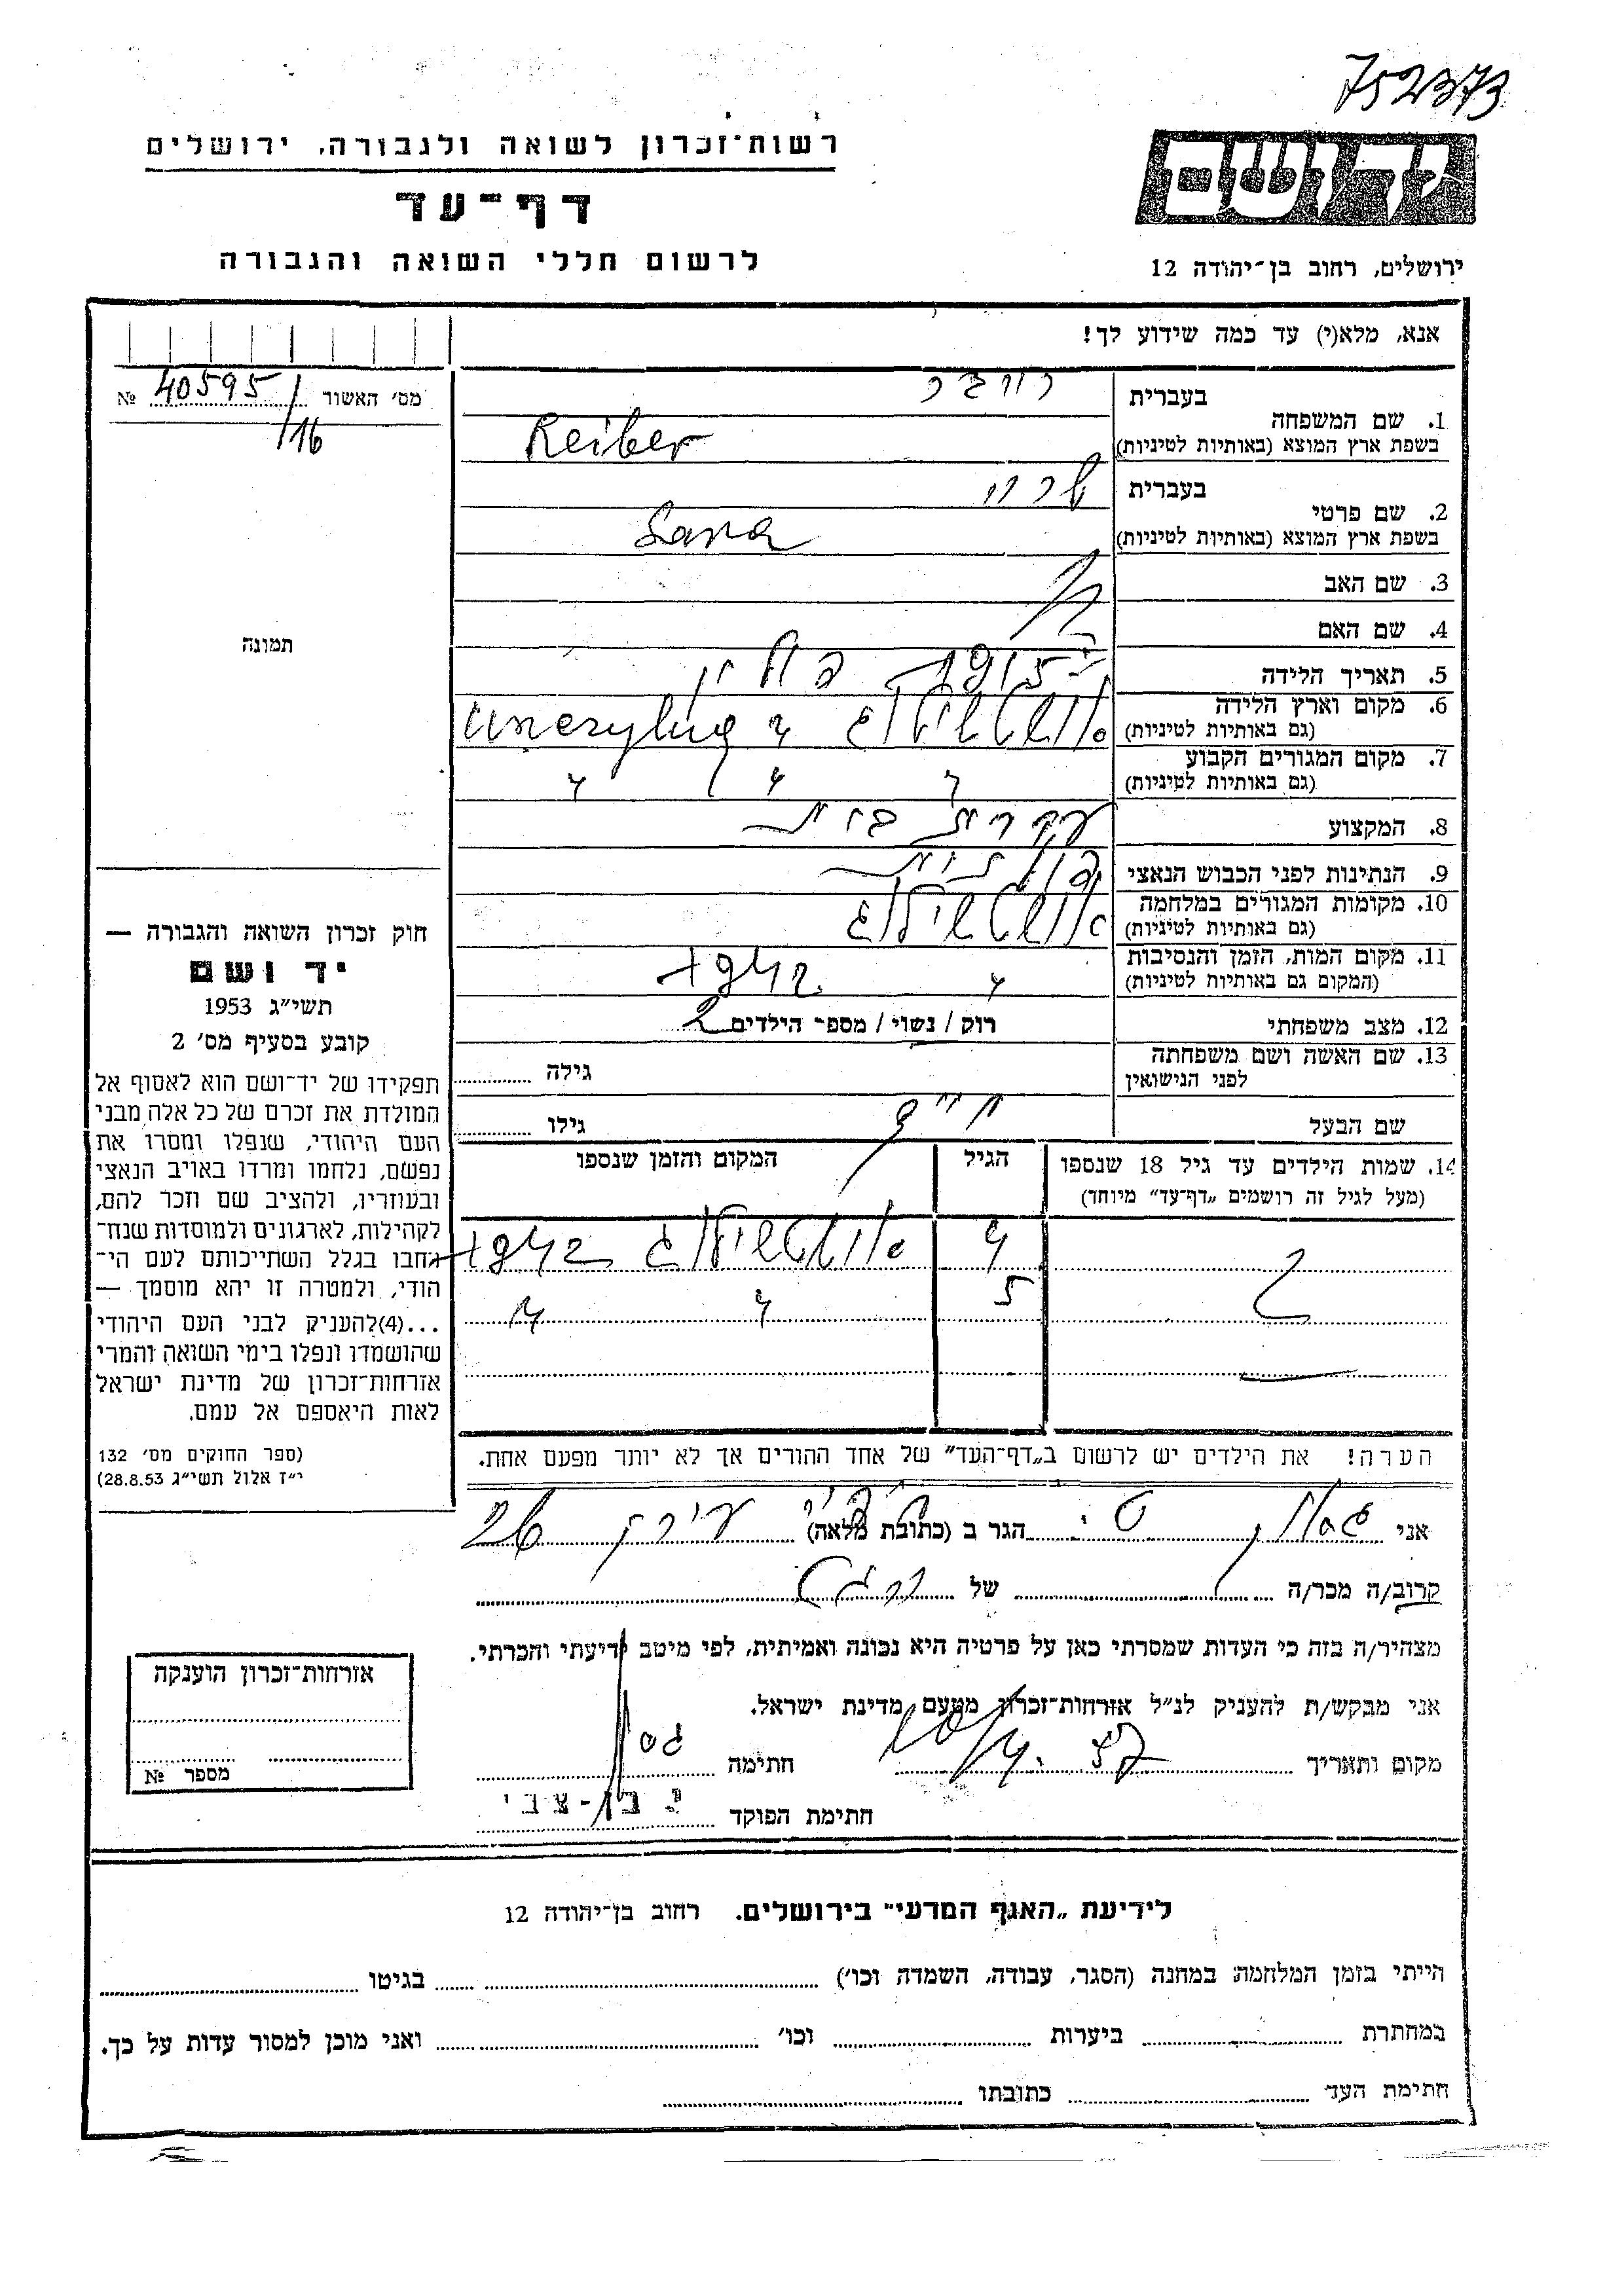 752373
רשות־זכרון לשואה ולגבורה, ירושלים
יד ושם
דף־עד
לרשום חללי השואה והגבורה
ירושלים, רחוב בן־יהודה 12
אנא, מלא(י) עד כמה שידוע לך!
מס׳ האשור 40595/16 №
1. שם המשפחה
בעברית רייבר
בשפת ארץ המוצא (באותיות לטיניות) Reiber
2. שם פרטי
בעברית שרה
בשפת ארץ המוצא (באותיות לטיניות) Sara
3. שם האב
4. שם האם
5. תאריך הלידה 1915
6. מקום וארץ הלידה
(גם באותיות לטיניות)
7. מקום המגורים הקבוע
(גם באותיות לטיניות) " " "
8. המקצוע עקרת בית
9. הנתינות לפני הכבוש הנאצי פולנית
10. מקומות המגורים במלחמה
(גם באותיות לטיניות)
11. מקום המות, הזמן והנסיבות
(המקום גם באותיות לטיניות) " 1942
12. מצב משפחתי רוק / נשוי / מספר הילדים 2
13. שם האשה ושם משפחתה
לפני הנישואין גילה
שם הבעל גילו
14. שמות הילדים עד גיל 18 שנספו
(מעל לגיל זה רושמים „דף־עד״ מיוחד)
הגיל
המקום והזמן שנספו
4 1942
2
5 " "
הערה! את הילדים יש לרשום ב„דף־העד״ של אחד ההורים אך לא יותר מפעם אחת.
תמונה
חוק זכרון השואה והגבורה —
יד ושם
תשי״ג 1953
קובע בסעיף מס׳ 2
תפקידו של יד־ושם הוא לאסוף אל
המולדת את זכרם של כל אלה מבני
העם היהודי, שנפלו ומסרו את
נפשם, נלחמו ומרדו באויב הנאצי
ובעוזריו, ולהציב שם וזכר להם,
לקהילות, לארגונים ולמוסדות שנח־
רבו בגלל השתייכותם לעם הי־
הודי, ולמטרה זו יהא מוסמך —
...(4)להעניק לבני העם היהודי
שהושמדו ונפלו בימי השואה והמרי
אזרחות־זכרון של מדינת ישראל
לאות היאספם אל עמם.
(ספר החוקים מס׳ 132
י״ז אלול תשי״ג 28.8.53)
אני הגר ב (כתובת מלאה) 26
קרוב/ה מכר/ה של
מצהיר/ה בזה כי העדות שמסרתי כאן על פרטיה היא נכונה ואמיתית, לפי מיטב ידיעתי והכרתי.
אני מבקש/ת להעניק לנ״ל אזרחות־זכרון מטעם מדינת ישראל.
מקום ותאריך 57 חתימה
חתימת הפוקד י. בן-צבי
אזרחות־זכרון הוענקה
מספר №
לידיעת „האגף המדעי״ בירושלים. רחוב בן־יהודה 12
הייתי בזמן המלחמה: במחנה (הסגר, עבודה, השמדה וכו׳) בגיטו
במחתרת ביערות וכו׳ ואני מוכן למסור עדות על כך.
חתימת העד כתובתו